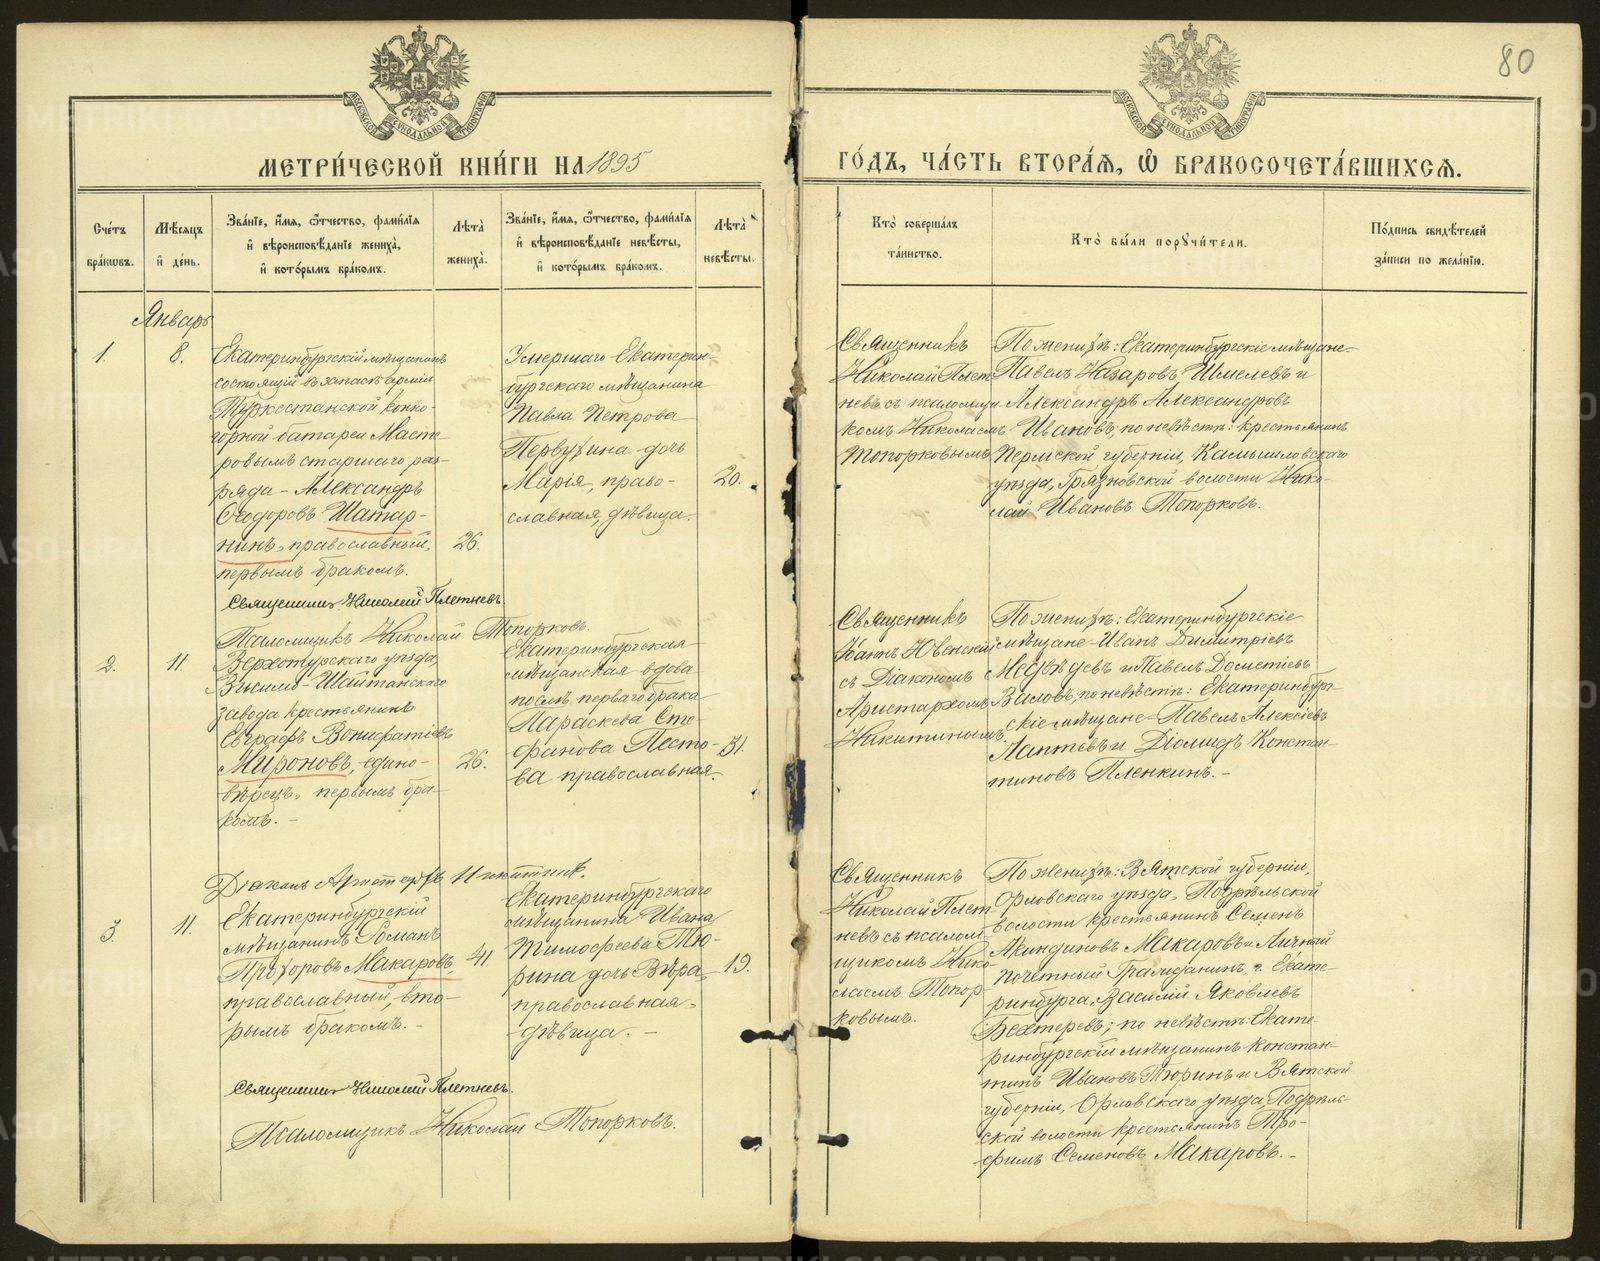 80
МОСКОВСКОЙ СѴНОДАЛЬНОЙ ТИПОГРАФІИ
МОСКОВСКОЙ СѴНОДАЛЬНОЙ ТИПОГРАФІИ
МЕТРИ́ЧЕСКОЙ КНИ́ГИ НА 1895
ГО́ДЪ, ЧА́СТЬ ВТОРА́Ѧ, Ѽ БРАКОСОЧЕТА́ВШИХСѦ.
Сче́тъ
бра́кѡвъ.
Мѣ́сѧцъ
и҆ де́нь.
Зва́нїе, и҆́мѧ, ѻ҆́тчество, фами́лїѧ
и҆ вѣроисповѣ́данїе жениха̀,
и҆ кото́рымъ бра́комъ.
Лѣ́та̀
жениха̀.
Зва́нїе, и҆́мѧ, ѻ҆́тчество, фами́лїѧ
и҆ вѣроисповѣ́данїе невѣ́сты,
и҆ кото́рымъ бра́комъ.
Лѣ́та̀
невѣ́сты.
Кто̀ соверша́лъ
та́инство.
Кто̀ бы́ли порꙋчи́тели.
По́дпись свидѣ́телей
за́писи по жела́нїю.
Январь
1.
8.
Екатеринбургскій мѣщанинъ
состоящій въ запасѣ арміи
Туркестанской конно-
горной батареи Масте-
ровымъ старшаго раз-
ряда - Александръ
Ѳеодоровъ Шатар-
нинъ, православный,
первымъ бракомъ.
26.
Умершаго Екатерин-
бургскаго мѣщанина
Павла Петрова
Первухина дочь
Марія, право-
славная, дѣвица.
20.
Священникъ
Николай Плет-
невъ съ псаломщи-
комъ Николаемъ
Топорковымъ
По женихѣ: Екатеринбургскіе мѣщане-
Павелъ Назаровъ Шмелевъ и
Александръ Александровъ
Ивановъ, по невѣстѣ: крестьянинъ
Пермской губерніи, Камышловскаго
уѣзда, Грязновской волости Нико-
лай Ивановъ Топорковъ.
Священникъ Николай Плетневъ
Псаломщикъ Николай Топорковъ.
2.
11.
Верхотурскаго уѣзда,
Висимо-Шайтанскаго
завода крестьянинъ
Евграфъ Вонифатіевъ
Мироновъ, едино-
вѣрецъ, первымъ бра-
комъ. -
26.
Екатеринбургская
мѣщанская вдова
послѣ перваго брака
Параскева Сте-
фанова Песто-
ва православная.
31.
Священникъ
Іоаннъ Ювенскій
съ Діакономъ
Аристархомъ
Никитинымъ
По женихѣ: Екатеринбургскіе
мѣщане - Иванъ Димитріевъ
Медвѣдевъ и Павелъ Дометіевъ
Валовъ, по невѣстѣ: Екатеринбург-
скіе мѣщане - Павелъ Алексіевъ
Лаптевъ и Діомидъ Констан-
тиновъ Пленкинъ. -
Діаконъ Аристархъ Никитинъ.
3.
11.
Екатеринбургскій
мѣщанинъ Романъ
Прохоровъ Макаровъ,
православный, вто-
рымъ бракомъ. -
41.
Екатеринбургскаго
мѣщанина Ивана
Тимофеева Тю-
рина дочь Вѣра,
православная,
дѣвица. -
19.
Священникъ
Николай Плет-
невъ съ псалом-
щикомъ Нико-
лаемъ Топор-
ковымъ.
По женихѣ: Вятской губерніи,
Орловскаго уѣзда, Подрельской
волости крестьянинъ Семенъ
Акиндиновъ Макаровъ и Личный
почетный Гражданинъ г. Екате-
ринбурга, Василій Яковлевъ
Бехтеревъ; по невѣстѣ: Екате-
ринбургскій мѣщанинъ Констан-
тинъ Ивановъ Тюринъ и Вятской
губерніи, Орловскаго уѣзда, Подрель-
ской волости крестьянинъ Тро-
фимъ Семеновъ Макаровъ. -
Священникъ Николай Плетневъ.
Псаломщикъ Николай Топорковъ.
METRIKI.GASO-URAL.RU